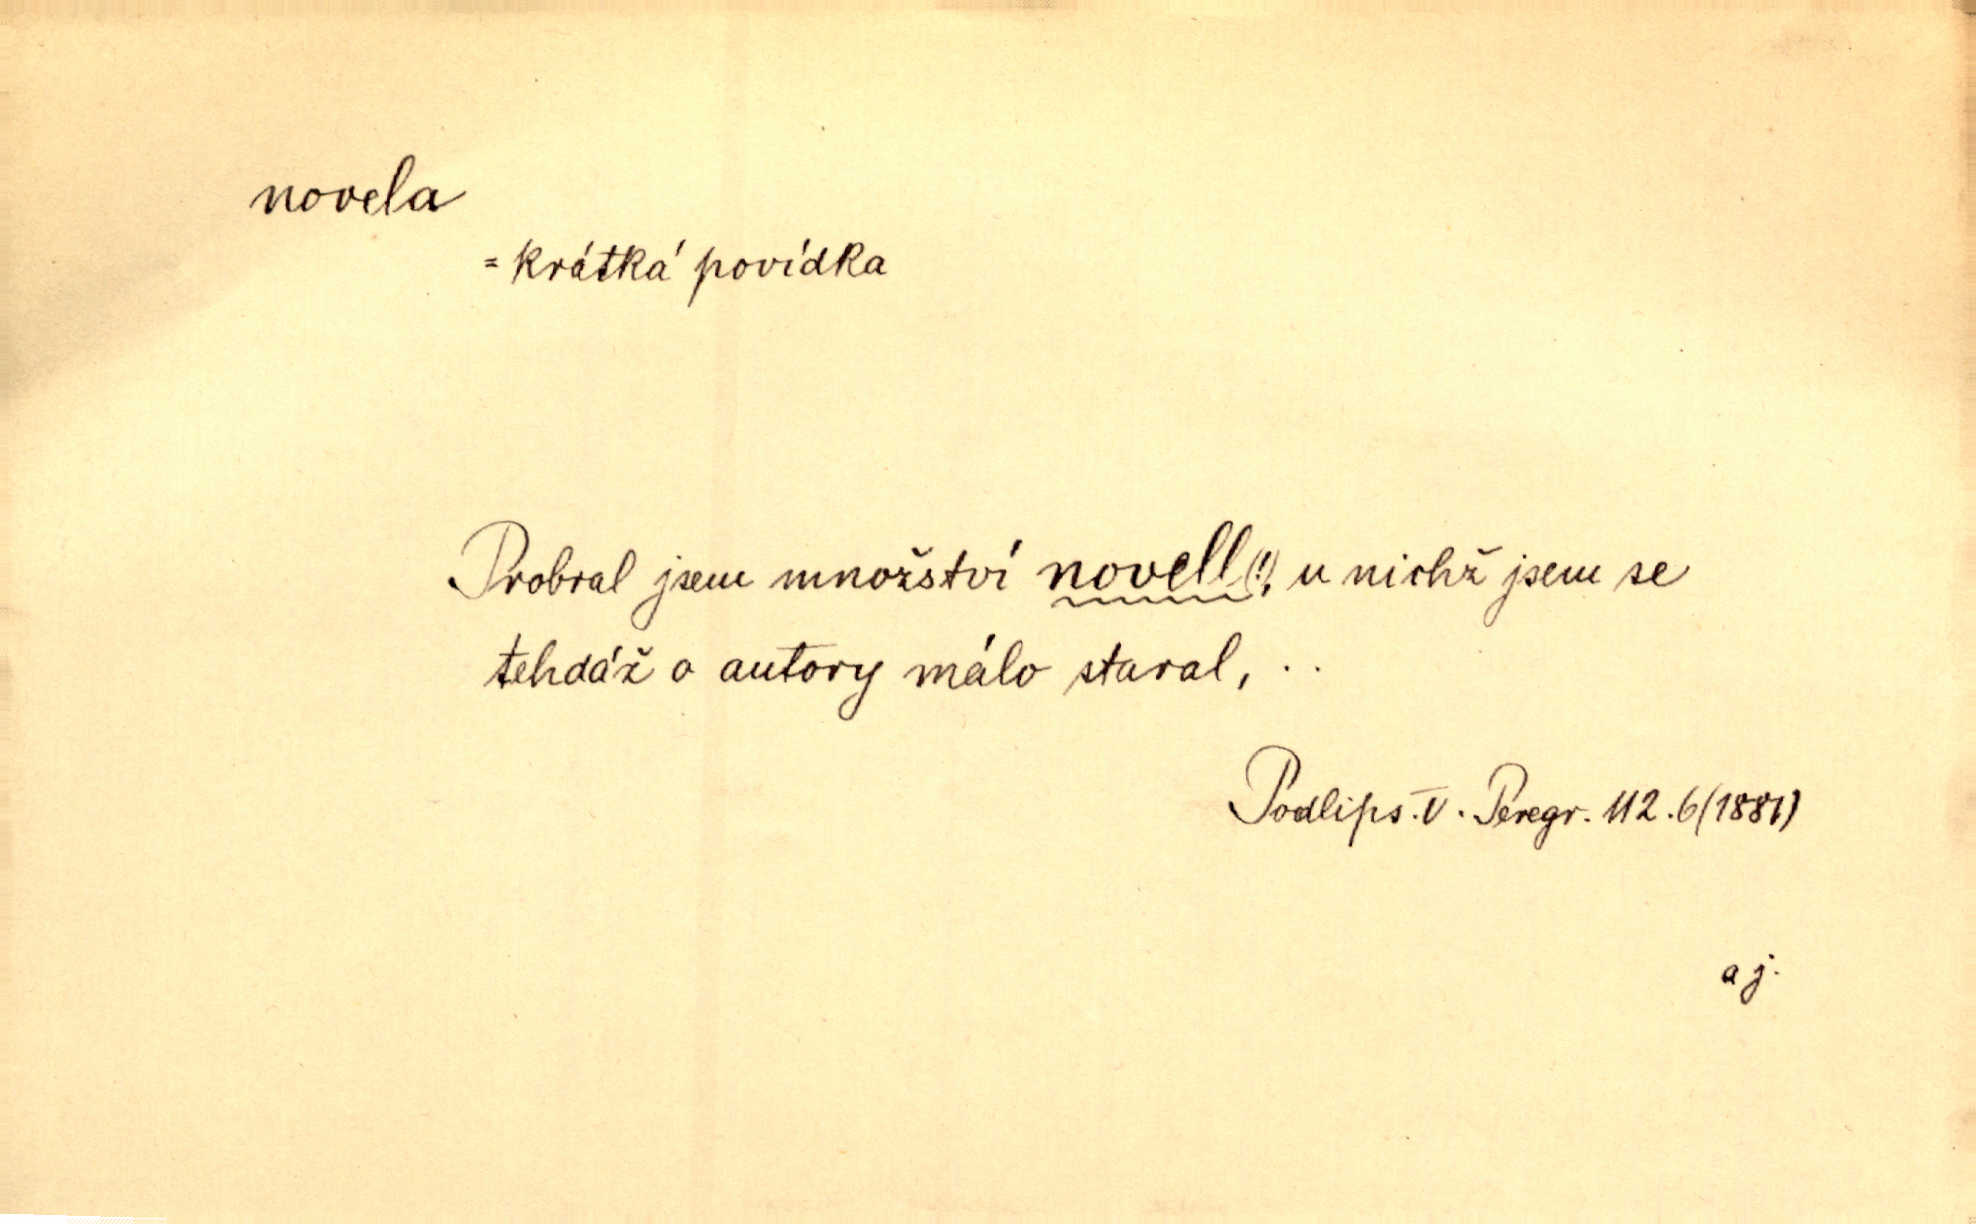 novela
= krátká povídka
Probral jsem množství novell(!), u nichž jsem se
tehdáž o autory málo staral, ..
Podlips. V. Peregr. 112.6 (1881)
a j.